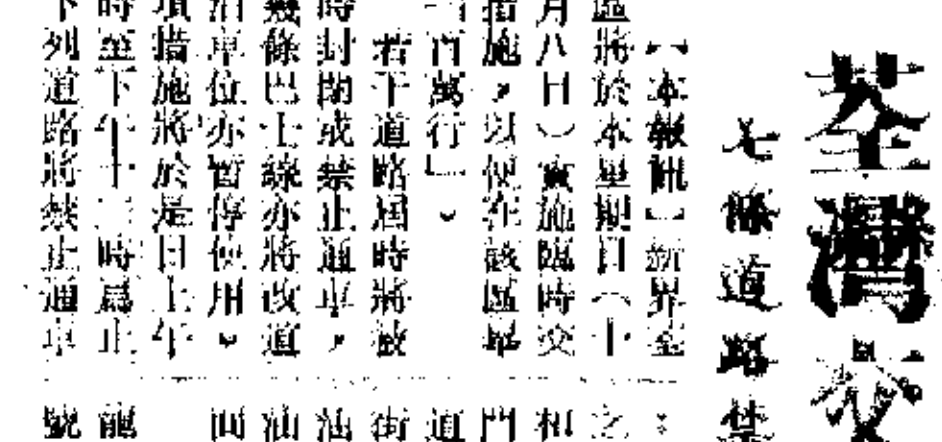 荃灣交
七條道路禁
【本報訊】新界荃
區將於本星期日（十
月八日）實施臨時交
措施，以便在該區舉
百萬行」。
若干道路屆時將被
時封閉或禁止通車，
幾條巴士線亦將改道
泊車位亦暫停使用。
項措施將於是日上午
時至下午十二時爲止
下列道路將禁止通車
之
和
門
道
街
油
龍
號